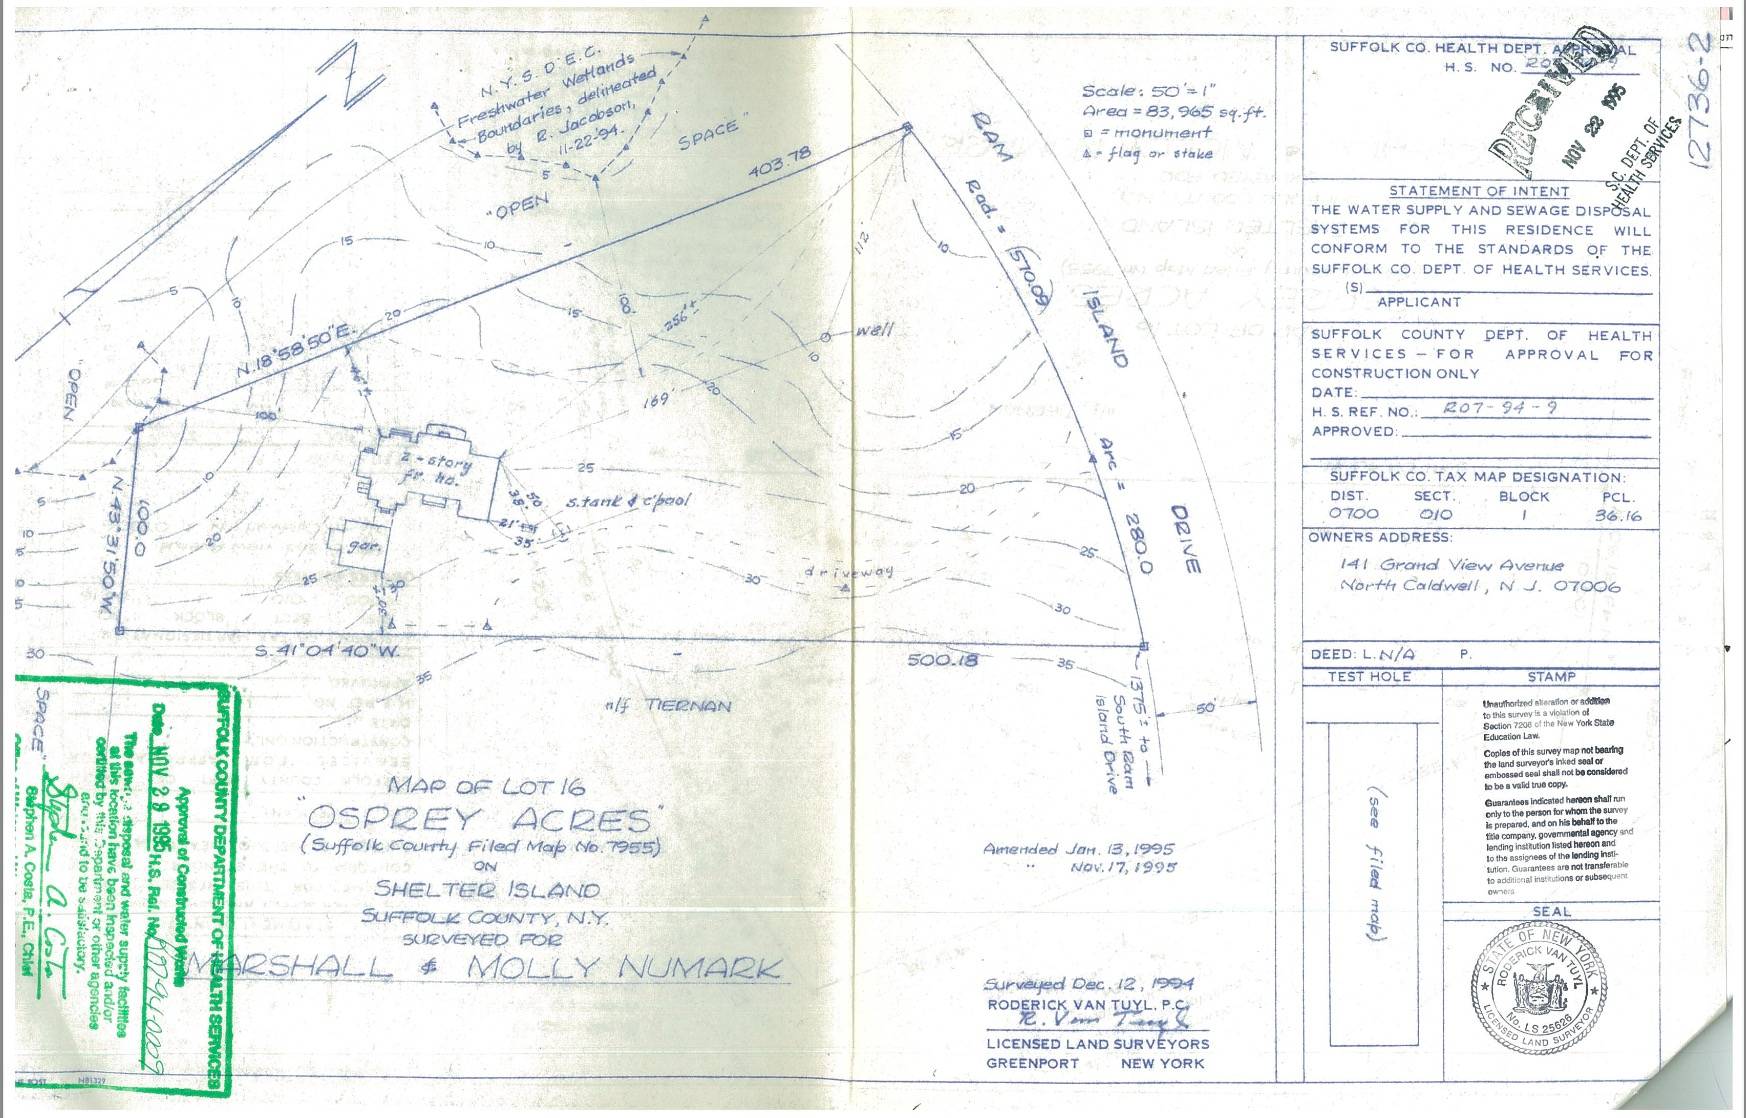 N.Y.S.D.E.C.
Freshwater Wetlands
Boundaries, delineated
by R. Jacobson,
11-22-'94.
"OPEN
SPACE"
403.78
N.18°58'50"E.
Scale: 50'=1"
Area = 83,965 sq.ft.
= monument
= flag or stake
RAM
ISLAND
DRIVE
Rad. = (570.09)
Arc = 280.0
211'
well
256'±
169'
100'
100'
46'±
2-story
fr. ho.
gar.
s.tank & c'pool
38'
50'
21'
35'
driveway
30'±
"OPEN
SPACE"
N.43°31'50"W.
100.0
S.41°04'40"W.
500.18
n/f TIERNAN
1375'± to
South Ram
Island Drive
50'
5
15
10
5
10
20
15
10
20
10
15
25
20
25
30
30
35
35
30
10
20
25
5
10
15
MAP OF LOT 16
"OSPREY ACRES"
(Suffolk County Filed Map No. 7955)
ON
SHELTER ISLAND
SUFFOLK COUNTY, N.Y.
SURVEYED FOR
MARSHALL & MOLLY NUMARK
Amended Jan. 13, 1995
" Nov. 17, 1995
Surveyed Dec. 12, 1994
RODERICK VAN TUYL, P.C.
R. Van Tuyl
LICENSED LAND SURVEYORS
GREENPORT NEW YORK
SUFFOLK COUNTY DEPARTMENT OF HEALTH SERVICES
Approval of Constructed Works
Date NOV 29 1995 H.S. Ref. No.
The sewage disposal and water supply facilities
at this location have been inspected and/or
certified by this Department or other agencies
and found to be satisfactory.
Stephen A. Costa
Stephen A. Costa, P.E., Chief
SUFFOLK CO. HEALTH DEPT. APPROVAL
H. S. NO.
RECEIVED
NOV 22 1995
S.C. DEPT. OF
HEALTH SERVICES
12736-2
STATEMENT OF INTENT
THE WATER SUPPLY AND SEWAGE DISPOSAL
SYSTEMS FOR THIS RESIDENCE WILL
CONFORM TO THE STANDARDS OF THE
SUFFOLK CO. DEPT. OF HEALTH SERVICES.
(S)
APPLICANT
SUFFOLK COUNTY DEPT. OF HEALTH
SERVICES — FOR APPROVAL FOR
CONSTRUCTION ONLY
DATE:
H. S. REF. NO.: R07-94-9
APPROVED:
SUFFOLK CO. TAX MAP DESIGNATION:
DIST. SECT. BLOCK PCL.
0700 010 1 36.16
OWNERS ADDRESS:
141 Grand View Avenue
North Caldwell, N.J. 07006
DEED: L. N/A P.
TEST HOLE
(see filed map)
STAMP
Unauthorized alteration or addition
to this survey is a violation of
Section 7208 of the New York State
Education Law.
Copies of this survey map not bearing
the land surveyor's inked seal or
embossed seal shall not be considered
to be a valid true copy.
Guarantees indicated hereon shall run
only to the person for whom the survey
is prepared, and on his behalf to the
title company, governmental agency and
lending institution listed hereon and
to the assignees of the lending insti-
tution. Guarantees are not transferable
to additional institutions or subsequent
owners.
SEAL
STATE OF NEW YORK
RODERICK VAN TUYL
No. LS 25626
LICENSED LAND SURVEYOR